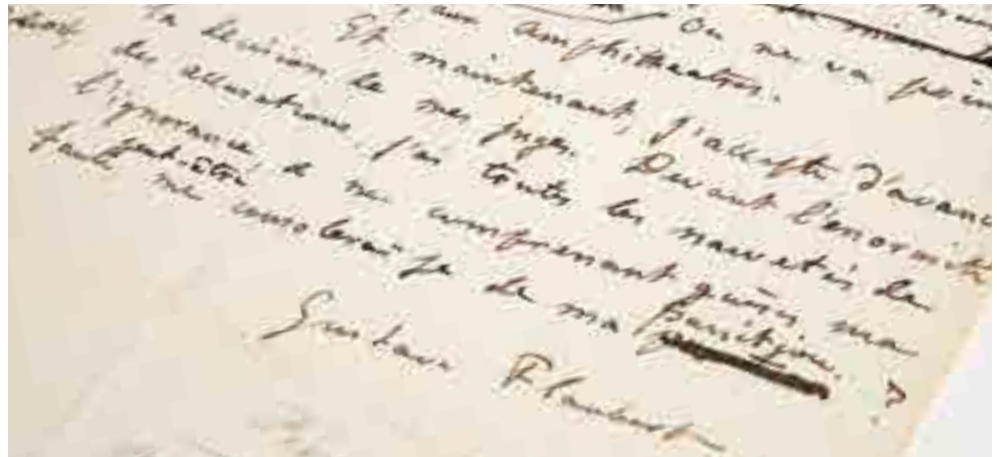 On ne va
aux amphithéâtres.
Et maintenant, j'accepte d'avance
la décision de mes juges. Devant l'énormité
des accusations, j'ai toutes les naïvetés de
l'ignorance, & ne comprenant guère ma
faute peut-être me consolerai-je de ma punition. ?
Gustave Flaubert